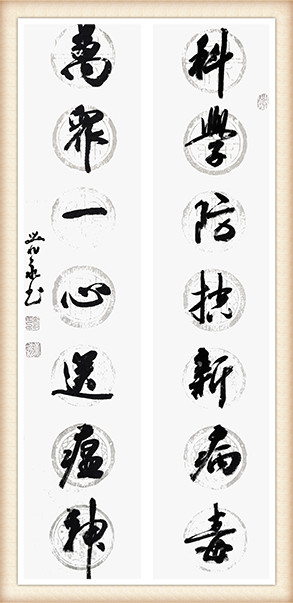 科學防控新病毒
萬眾一心送瘟神